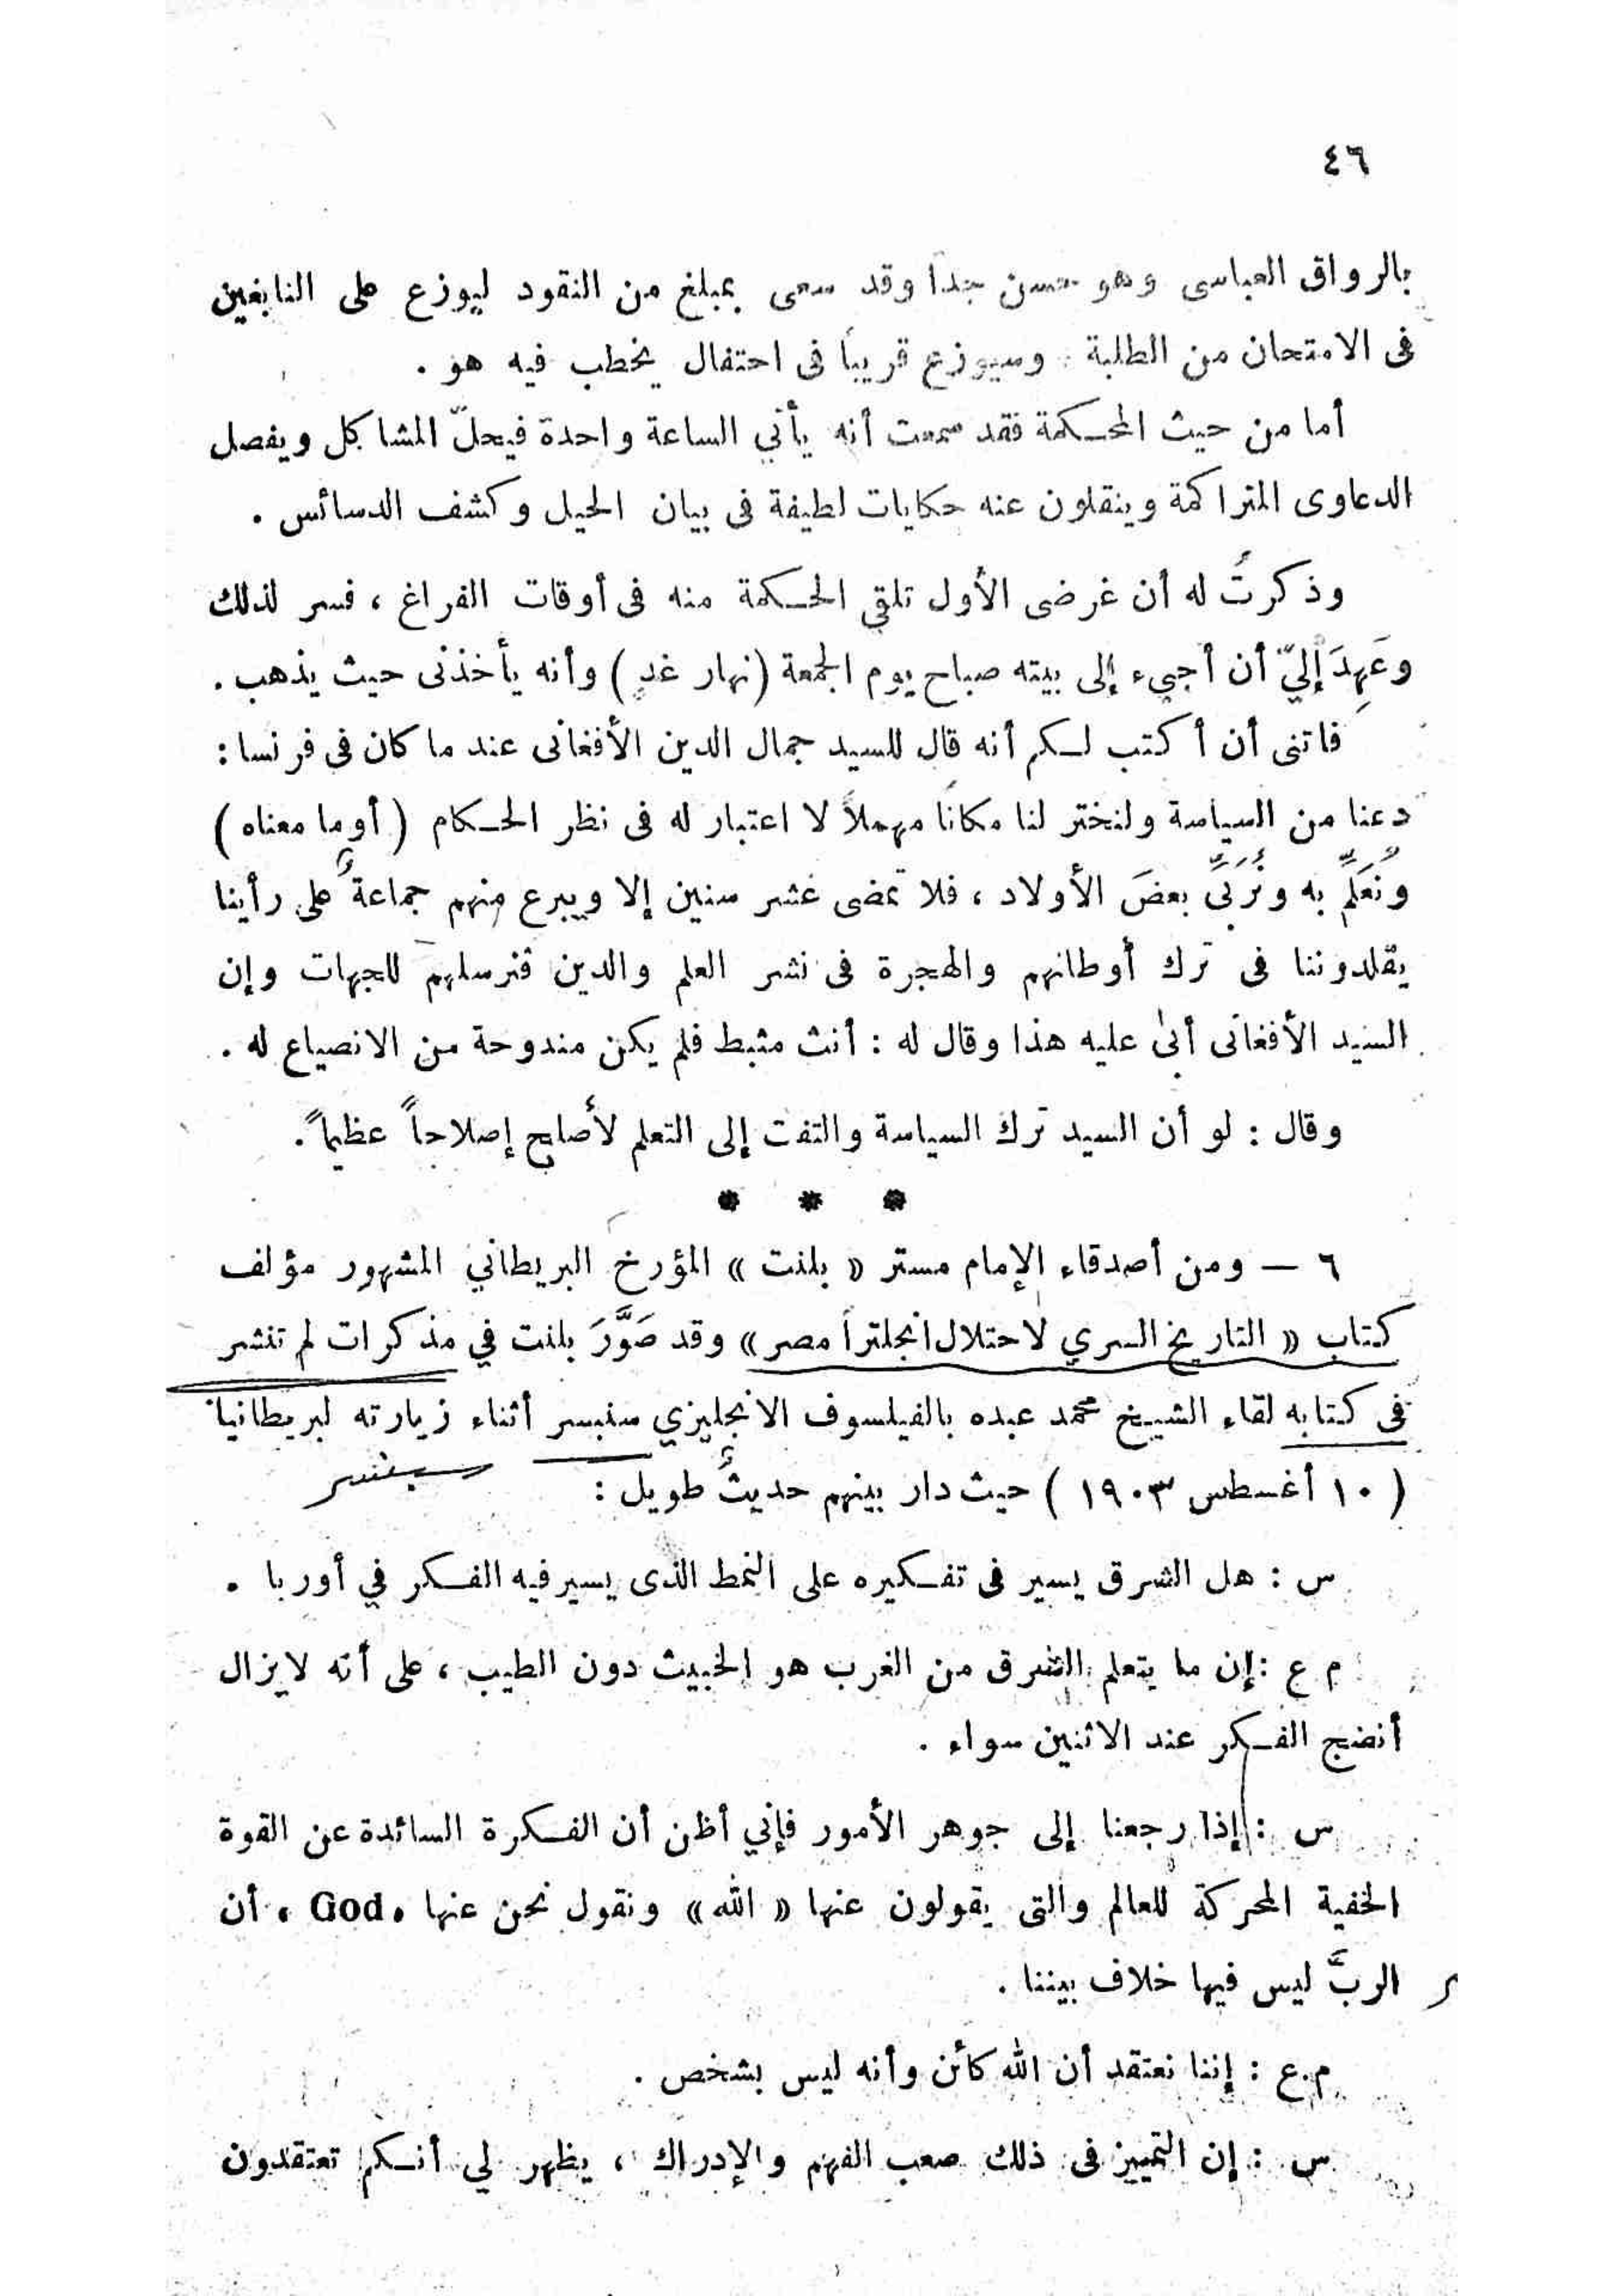 ٤٦
بالرواق العباسى وهو حسن جداً وقد سعى بمبلغ من النقود ليوزع على النابغين
فى الامتحان من الطلبة وسيوزع قريباً فى احتفال يخطب فيه هو .
أما من حيث المحكمة فقد سمعت أنه يأتي الساعة واحدة فيحلّ المشاكل ويفصل
الدعاوى المتراكمة وينقلون عنه حكايات لطيفة فى بيان الحيل وكشف الدسائس .
وذكرتُ له أن غرضى الأول تلقي الحكمة منه فى أوقات الفراغ ، فسر لذلك
وعَهِدَ إليّ أن أجيء إلى بيته صباح يوم الجمعة (نهار غدٍ) وأنه يأخذنى حيث يذهب .
فاتنى أن أكتب لكم أنه قال للسيد جمال الدين الأفغانى عند ما كان فى فرنسا :
دعنا من السياسة ولنختر لنا مكانًا مهملاً لا اعتبار له فى نظر الحكام ( أو ما معناه )
ونُعَلِّمُ به ونُرَبِّىَ بعضَ الأولاد ، فلا تمضى عشر سنين إلا ويبرع منهم جماعةٌ على رأينا
يقلدوننا فى ترك أوطانهم والهجرة فى نشر العلم والدين فنرسلهم للجهات وإن
السيد الأفغانى أبىٰ عليه هذا وقال له : أنت مثبط فلم يكن مندوحة من الانصياع له .
وقال : لو أن السيد ترك السياسة والتفت إلى التعلم لأصلح إصلاحاً عظيماً .
* * *
٦ — ومن أصدقاء الإمام مستر « بلنت » المؤرخ البريطاني المشهور مؤلف
كتاب « التاريخ السري لاحتلال انجلترا مصر » وقد صَوَّرَ بلنت في مذكرات لم تنشر
فى كتابه لقاء الشيخ محمد عبده بالفيلسوف الانجليزي سنبسر أثناء زيارته لبريطانيا
سبنسر
( ١٠ أغسطس ١٩٠٣ ) حيث دار بينهم حديثٌ طويل :
س : هل الشرق يسير فى تفكيره على النمط الذى يسير فيه الفكر في أوربا .
م ع : إن ما يتعلم الشرق من الغرب هو الخبيث دون الطيب ، على أنه لا يزال
أنضج الفكر عند الاثنين سواء .
س : إذا رجعنا إلى جوهر الأمور فإني أظن أن الفكرة السائدة عن القوة
الخفية المحركة للعالم والتى يقولون عنها « الله » ونقول نحن عنها ، God ، أن
الربَّ ليس فيها خلاف بيننا .
م.ع : إننا نعتقد أن الله كائن وأنه ليس بشخص .
س : إن التمييز فى ذلك صعب الفهم والإدراك ، يظهر لي أنكم تعتقدون